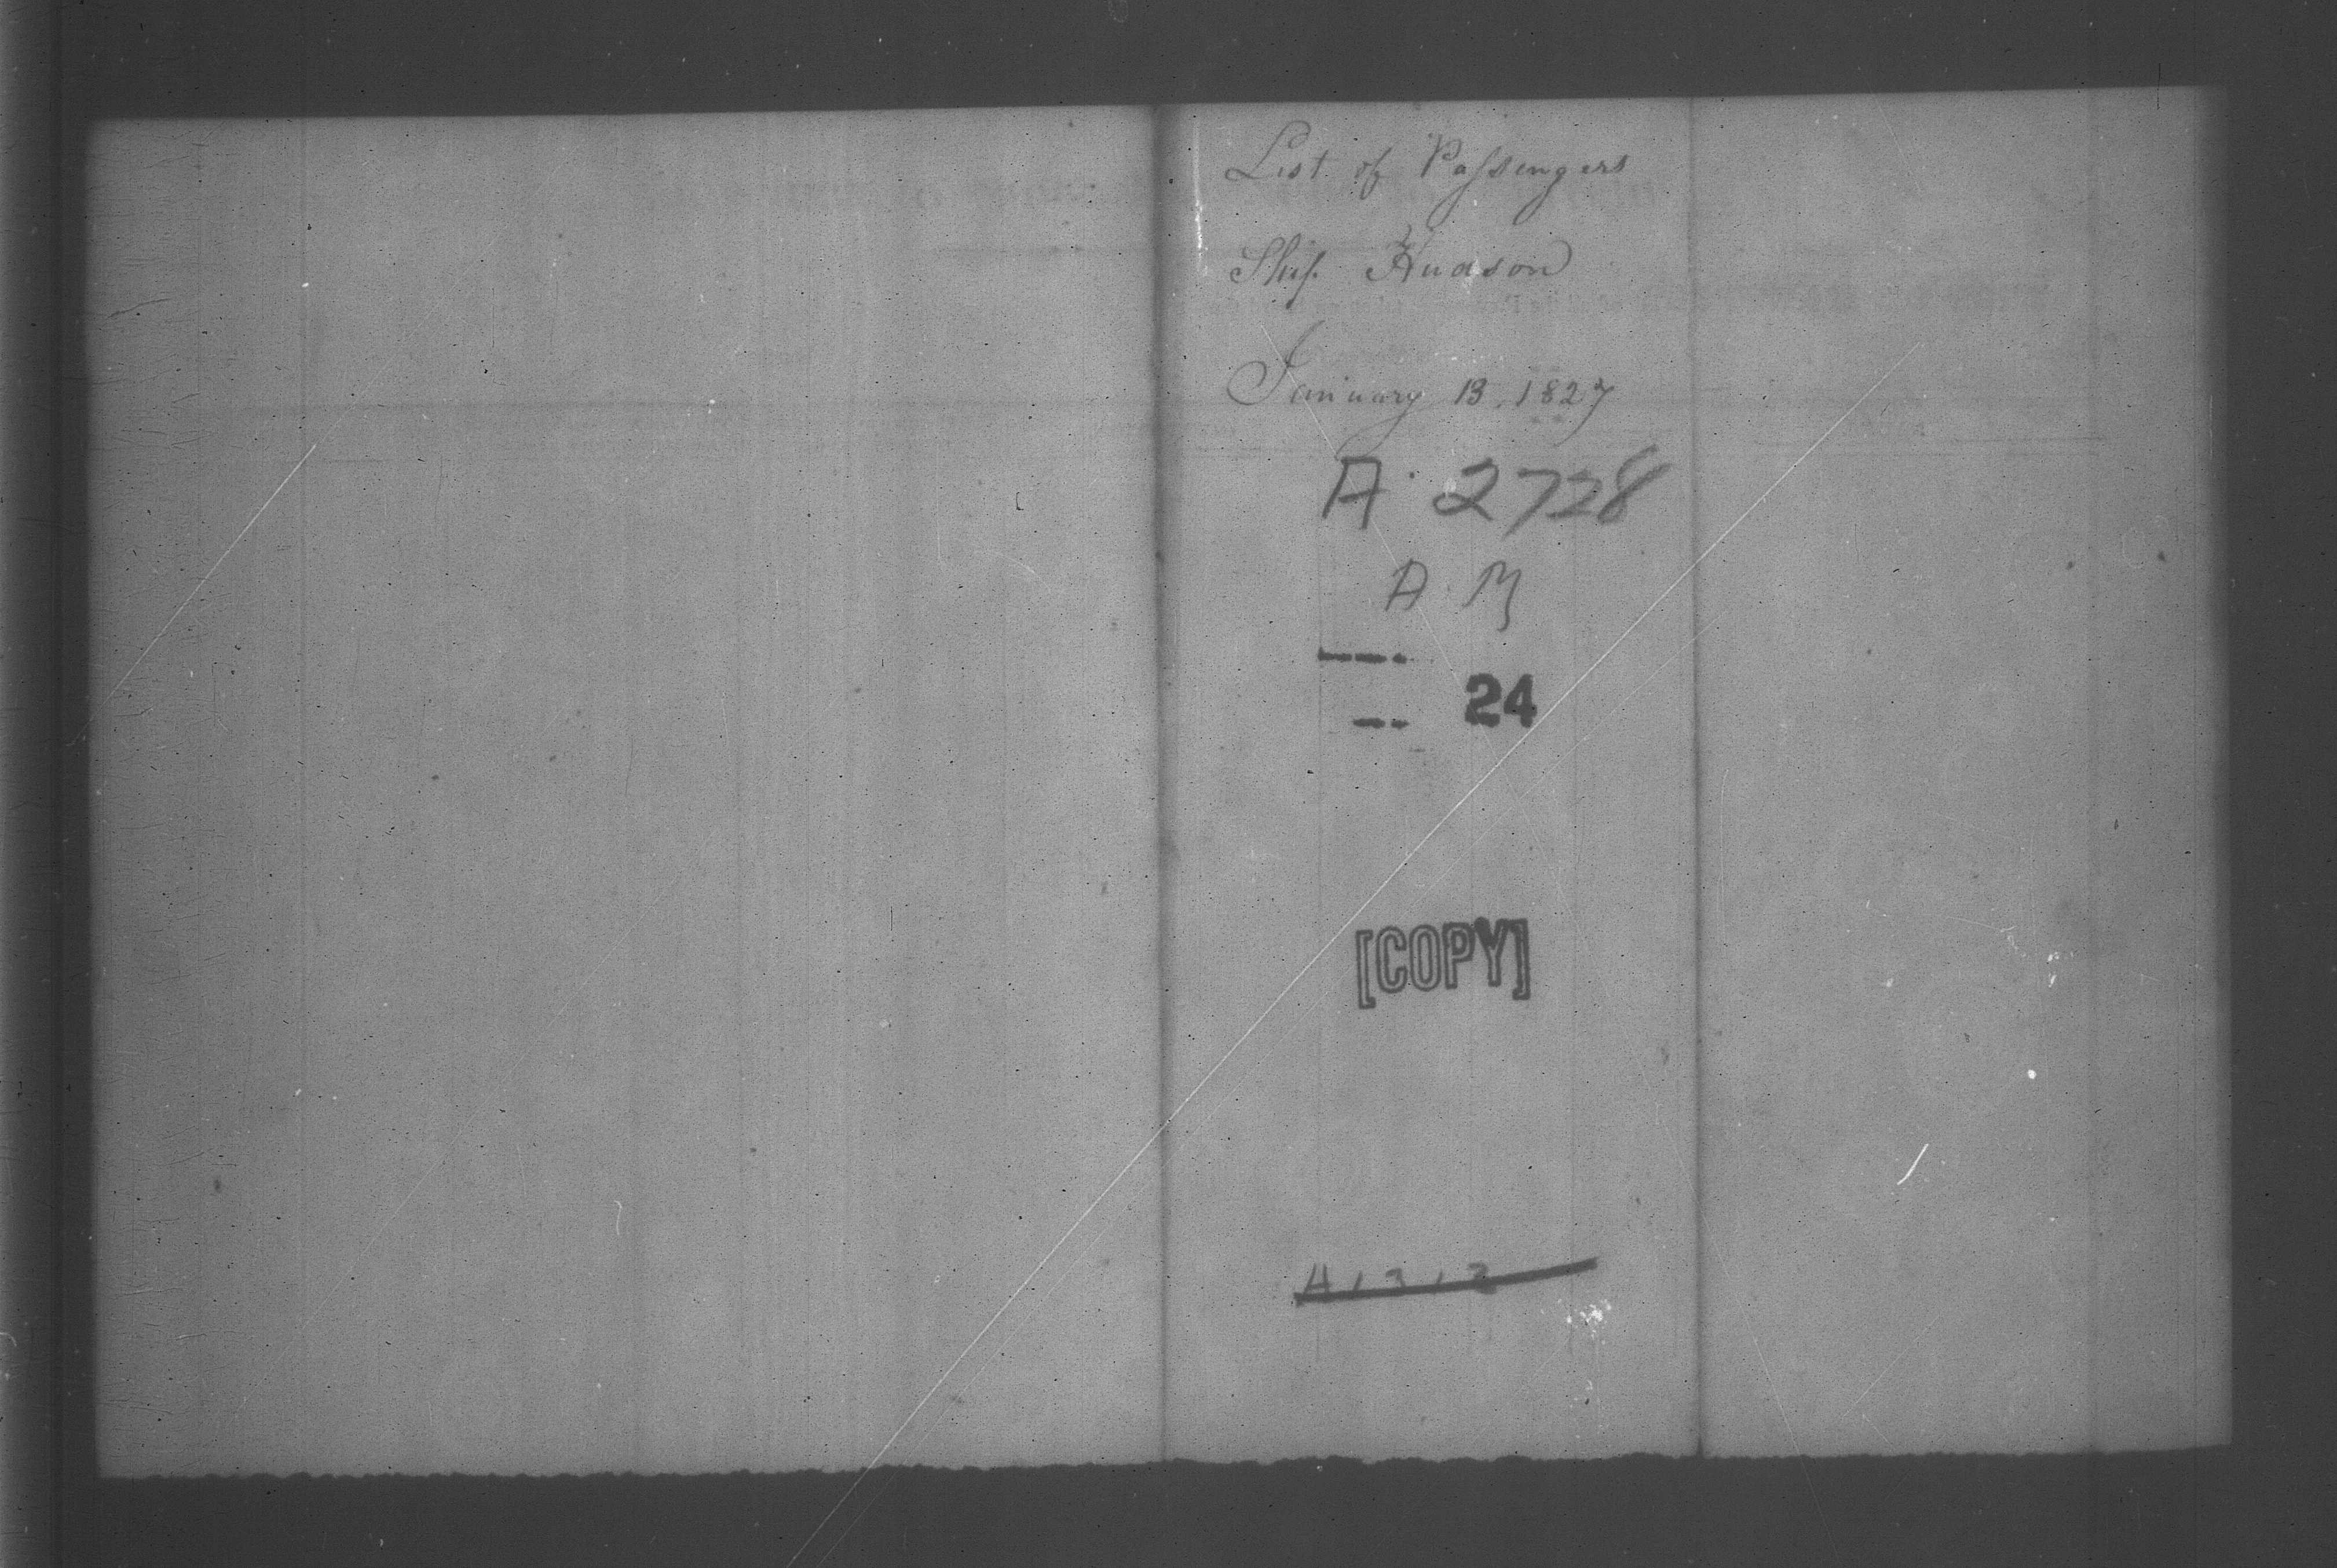 List of Passengers
Ship Hudson
January 13, 1827
A. 2728
A. M
24
[COPY]
A1312